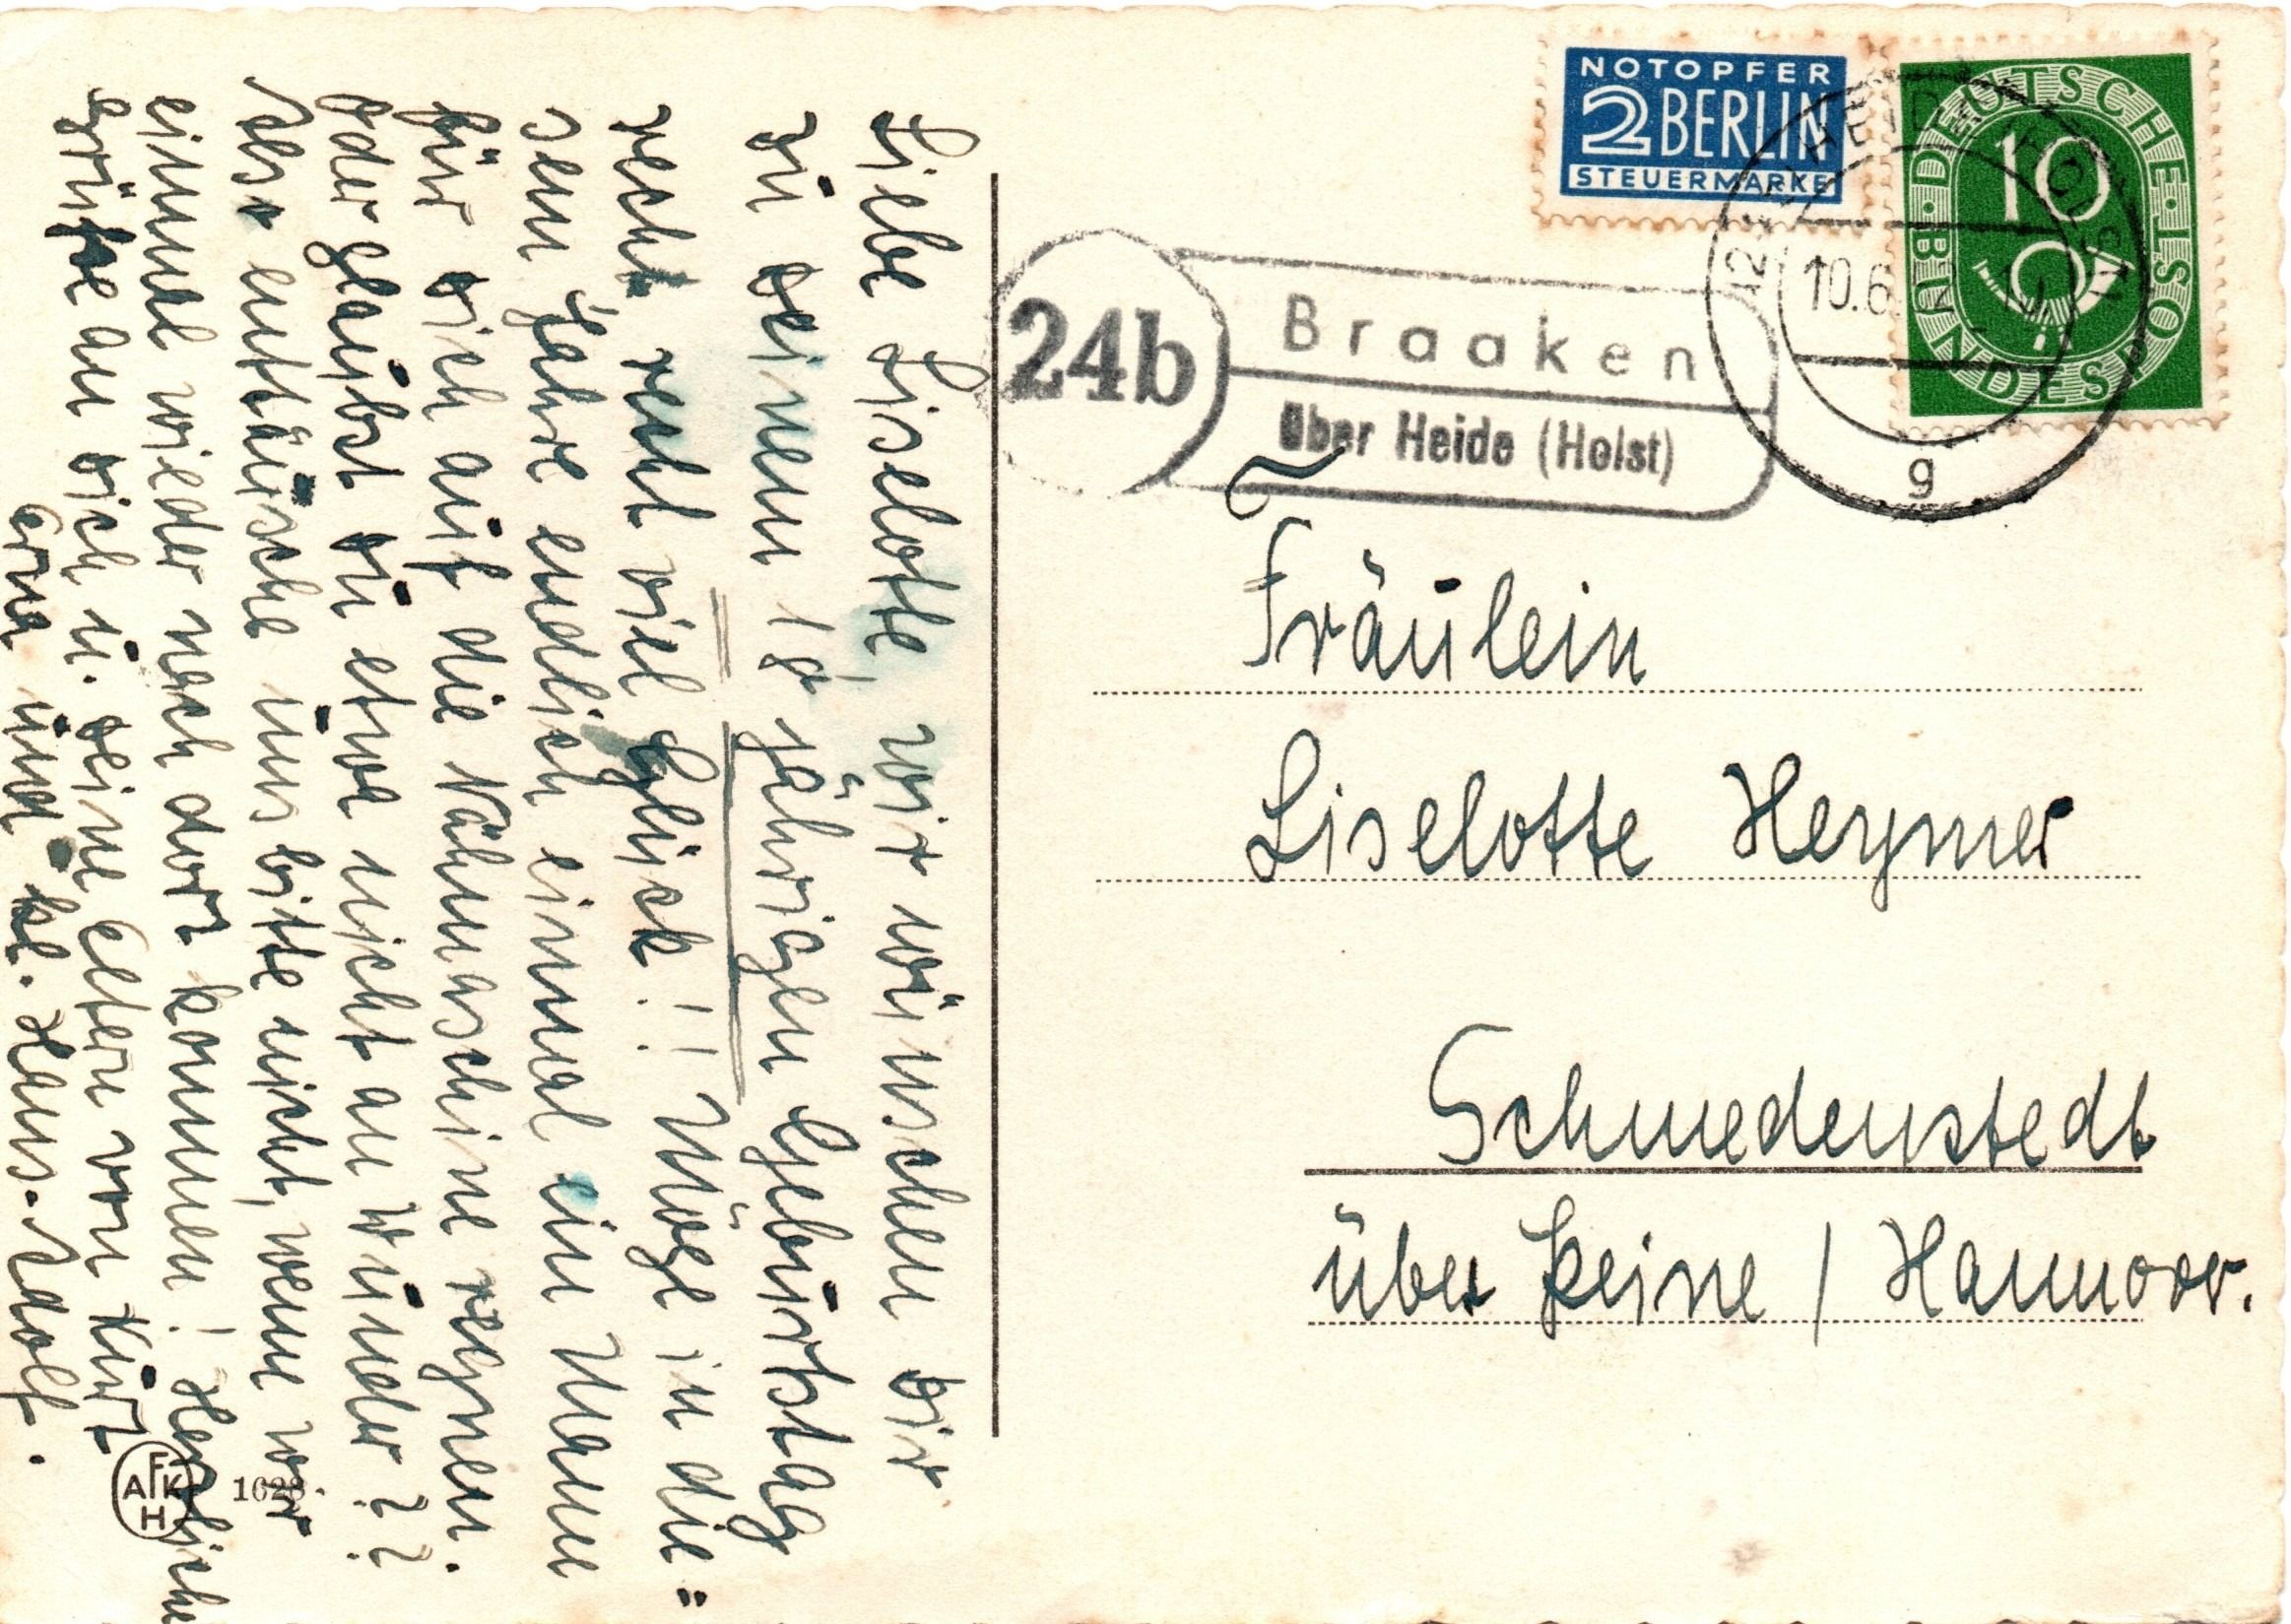 Liebe Liselotte, wir wünschen dir
zu deinem 18 jährigen Geburtstag
recht recht viel Glück!! Möge in die=
sem Jahre endlich einmal ein Mann
für dich auf die Nähmaschine regnen.
Oder glaubst du etwa nicht an Wunder??
enttäusche uns bitte nicht, wenn wir
einmal wieder nach dort kommen! Herzliche
Grüße an dich u. deine Eltern von Kurt
Erna und kl. Hans-Adolf.
AFKH 1028
NOTOPFER
2 BERLIN
STEUERMARKE
DEUTSCHE BUNDESPOST
10
HEIDE (HOLST)
10.6.
g
24b
Braaken
über Heide (Holst)
Fräulein
Liselotte Heymer
Schmedenstedt
über Peine / Hannover.